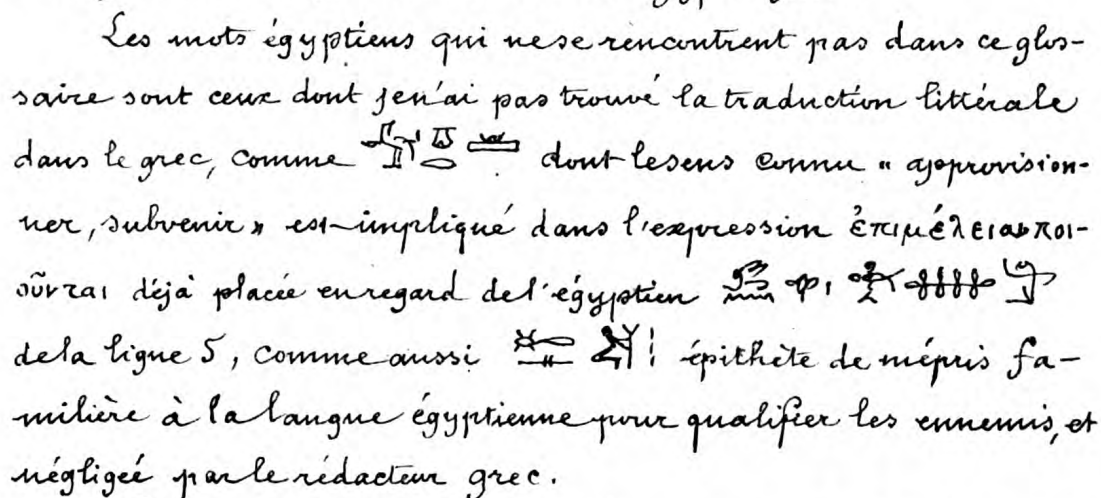 Les mots égyptiens qui ne se rencontrent pas dans ce glos-
saire sont ceux dont je n'ai pas trouvé la traduction littérale
dans le grec, comme dont le sens connu « approvision-
ner, subvenir » est impliqué dans l'expression ἐπιμέλειαν ποι-
οῦνται déjà placée en regard de l'égyptien
de la ligne 5, comme aussi épithète de mépris fa-
milière à la langue égyptienne pour qualifier les ennemis, et
négligée par le rédacteur grec.